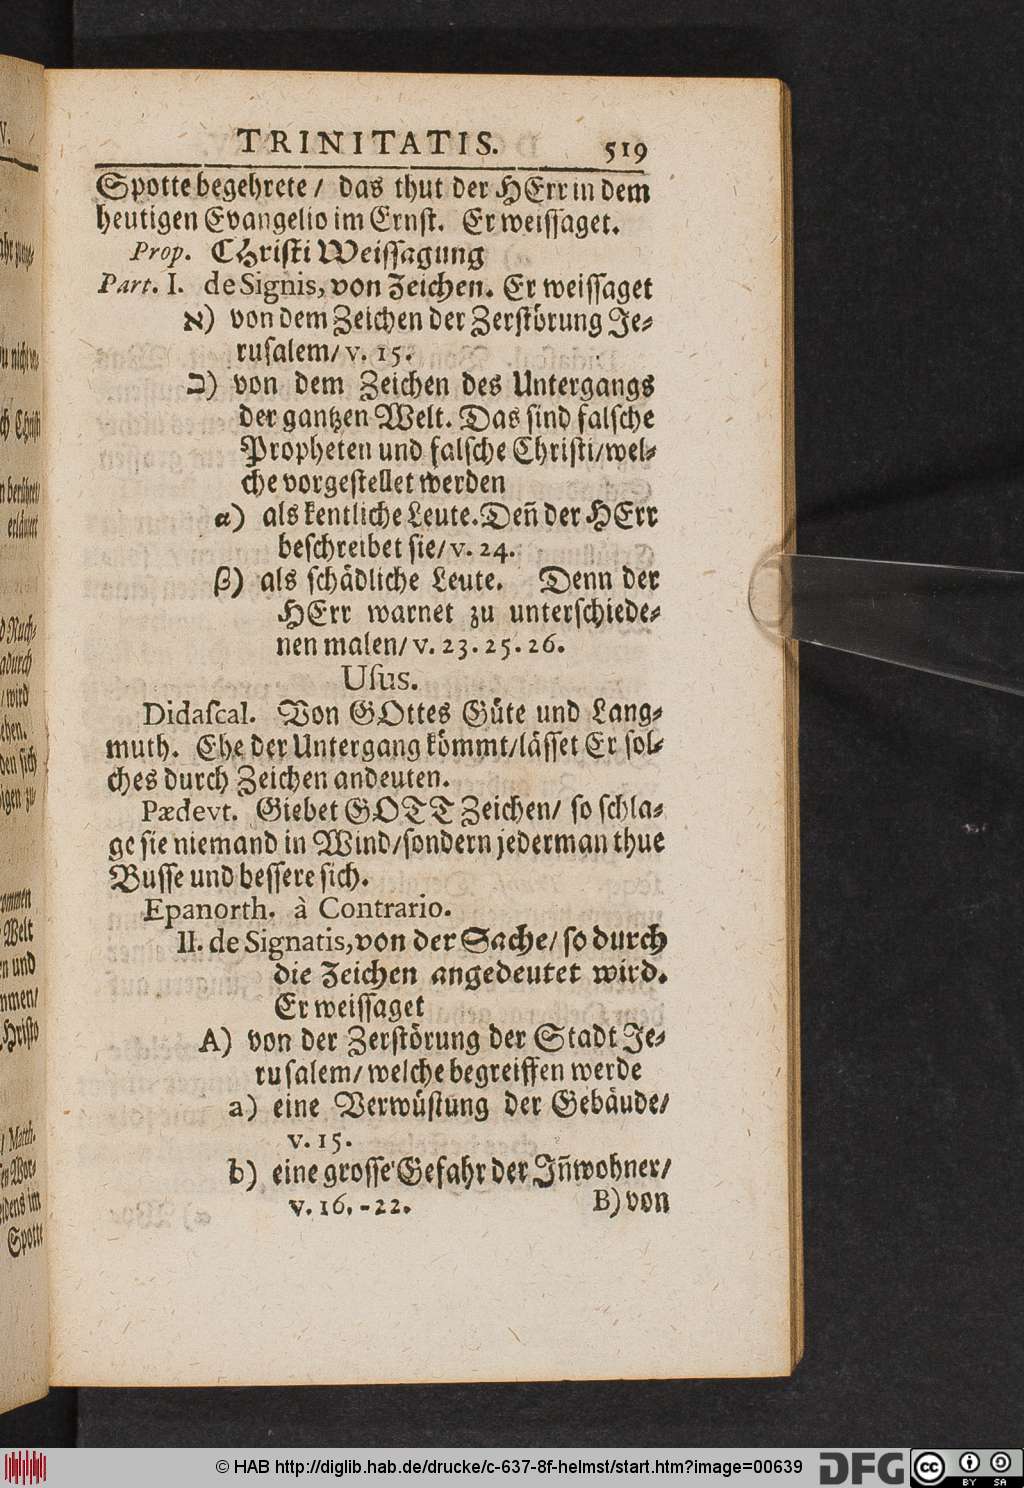 TRINITATIS. 519
Spotte begehrete / das thut der HErr in dem
heutigen Evangelio im Ernst. Er weissaget.
Prop. CHristi Weissagung
Part. I. de Signis, von Zeichen. Er weissaget
א) von dem Zeichen der Zerstörung Je⸗
rusalem/ v. 15.
ב) von dem Zeichen des Untergangs
der gantzen Welt. Das sind falsche
Propheten und falsche Christi/wel⸗
che vorgestellet werden
α) als kentliche Leute. Deñ der HErr
beschreibet sie/ v. 24.
β) als schädliche Leute. Denn der
HErr warnet zu unterschiede⸗
nen malen/ v. 23. 25. 26.
Usus.
Didascal. Von GOttes Güte und Lang⸗
muth. Ehe der Untergang kömmt/lässet Er sol⸗
ches durch Zeichen andeuten.
Pædevt. Giebet GOTT Zeichen/ so schla⸗
ge sie niemand in Wind/sondern jederman thue
Busse und bessere sich.
Epanorth. à Contrario.
II. de Signatis, von der Sache/ so durch
die Zeichen angedeutet wird.
Er weissaget
A) von der Zerstörung der Stadt Je⸗
rusalem/ welche begreiffen werde
a) eine Verwüstung der Gebäude/
v. 15.
b) eine grosse Gefahr der Iñwohner/
v. 16.-22. B) von
© HAB http://diglib.hab.de/drucke/c-637-8f-helmst/start.htm?image=00639 DFG cc BY SA